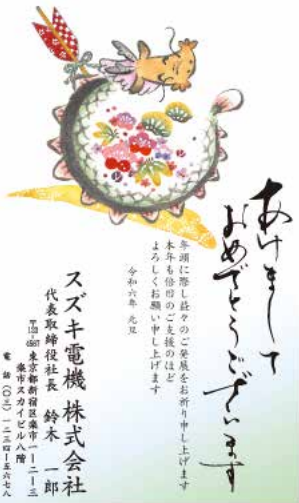 あけまして
おめでとうございます
年頭に際し益々のご発展をお祈り申し上げます
本年も倍旧のご支援のほど
よろしくお願い申し上げます
令和六年 元旦
スズキ電機 株式会社
代表取締役社長 鈴木 一郎
〒123-4567 東京都新宿区楽市一-二-三
楽市スカイビル八階
電話(〇三)一二三四-五六七八